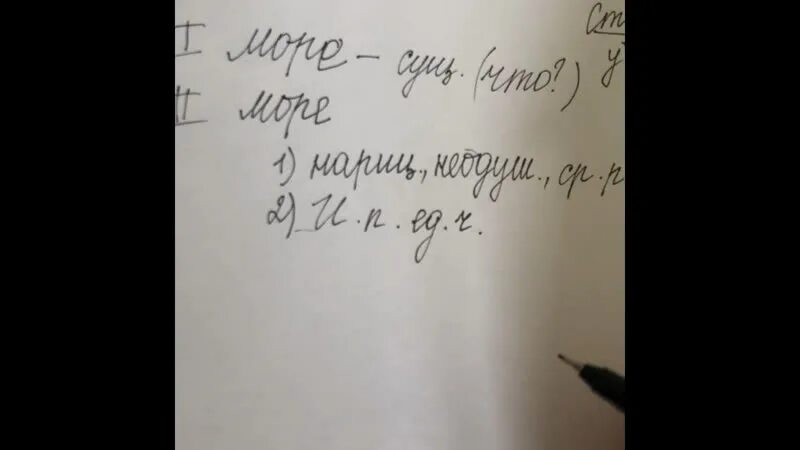 Ст
у
I море – сущ. (что?)
II море
1) нариц., неодуш., ср. р
2) И. п. ед. ч.